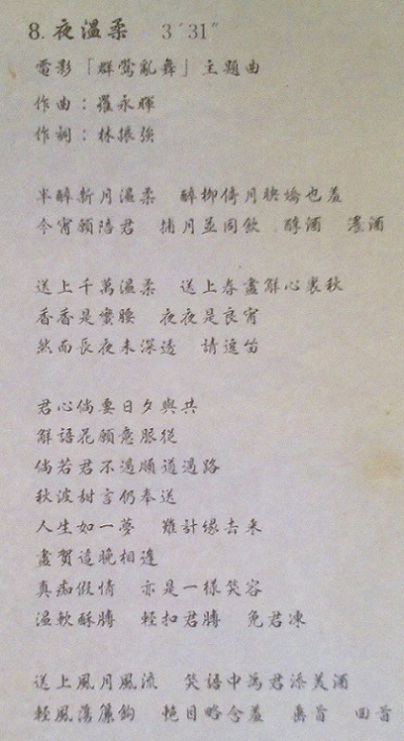 8. 夜溫柔　3′31″
電影「群鶯亂舞」主題曲
作曲：羅永暉
作詞：林振強
半醉新月溫柔　醉柳倚月映嬌也羞
今宵願陪君　捕月並同飲　醇酒　濃酒
送上千萬溫柔　送上春盡解心裏秋
香香是蠻腰　夜夜是良宵
然而長夜未深透　請逗留
君心倘要日夕與共
解語花願意服從
倘若君不過順道過路
秋波甜言仍奉送
人生如一夢　難計緣去來
盡賀這晚相逢
真痴假情　亦是一樣笑容
溫軟酥膊　輕扣君膊　免君凍
送上風月風流　笑語中為君添美酒
輕風蕩簾鉤　艷目略含羞　　回首